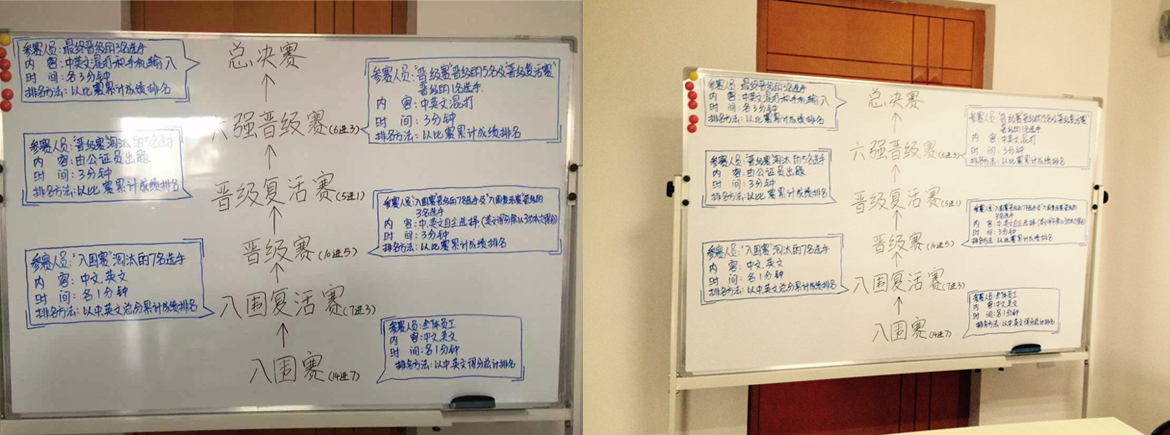 总决赛
参赛人员:最终晋级的3名选手
内 容:中英文混打和手机输入
时 间:各3分钟
排名方法:以比赛累计成绩排名
六强晋级赛(6进3)
参赛人员:"晋级赛"晋级的5名及"晋级复活赛"
晋级的1名选手
内 容:中英文混打
时 间:3分钟
排名方法:以比赛累计成绩排名
晋级复活赛(5进1)
参赛人员:"晋级赛"淘汰的5名选手
内 容:由公证员出题
时 间:3分钟
排名方法:以比赛累计成绩排名
晋级赛(10进5)
参赛人员:"入围赛"晋级的7名选手及"入围复活赛"晋级的
3名选手
内 容:中、英文自主选择
时 间:3分钟
排名方法:以比赛累计成绩排名
入围复活赛(7进3)
参赛人员:"入围赛"淘汰的7名选手
内 容:中文、英文
时 间:各1分钟
排名方法:以中英文总分累计成绩排名
入围赛(14进7)
参赛人员:全体员工
内 容:中文、英文
时 间:各1分钟
排名方法:以中英文得分总计排名
总决赛
参赛人员:最终晋级的3名选手
内 容:中英文混打和手机输入
时 间:各3分钟
排名方法:以比赛累计成绩排名
六强晋级赛(6进3)
参赛人员:"晋级赛"晋级的5名及"晋级复活赛"
晋级的1名选手
内 容:中英文混打
时 间:3分钟
排名方法:以比赛累计成绩排名
晋级复活赛(5进1)
参赛人员:"晋级赛"淘汰的5名选手
内 容:由公证员出题
时 间:3分钟
排名方法:以比赛累计成绩排名
晋级赛(10进5)
参赛人员:"入围赛"晋级的7名选手及"入围复活赛"晋级的
3名选手
内 容:中、英文自主选择
时 间:3分钟
排名方法:以比赛累计成绩排名
入围复活赛(7进3)
参赛人员:"入围赛"淘汰的7名选手
内 容:中文、英文
时 间:各1分钟
排名方法:以中英文总分累计成绩排名
入围赛(14进7)
参赛人员:全体员工
内 容:中文、英文
时 间:各1分钟
排名方法:以中英文得分总计排名